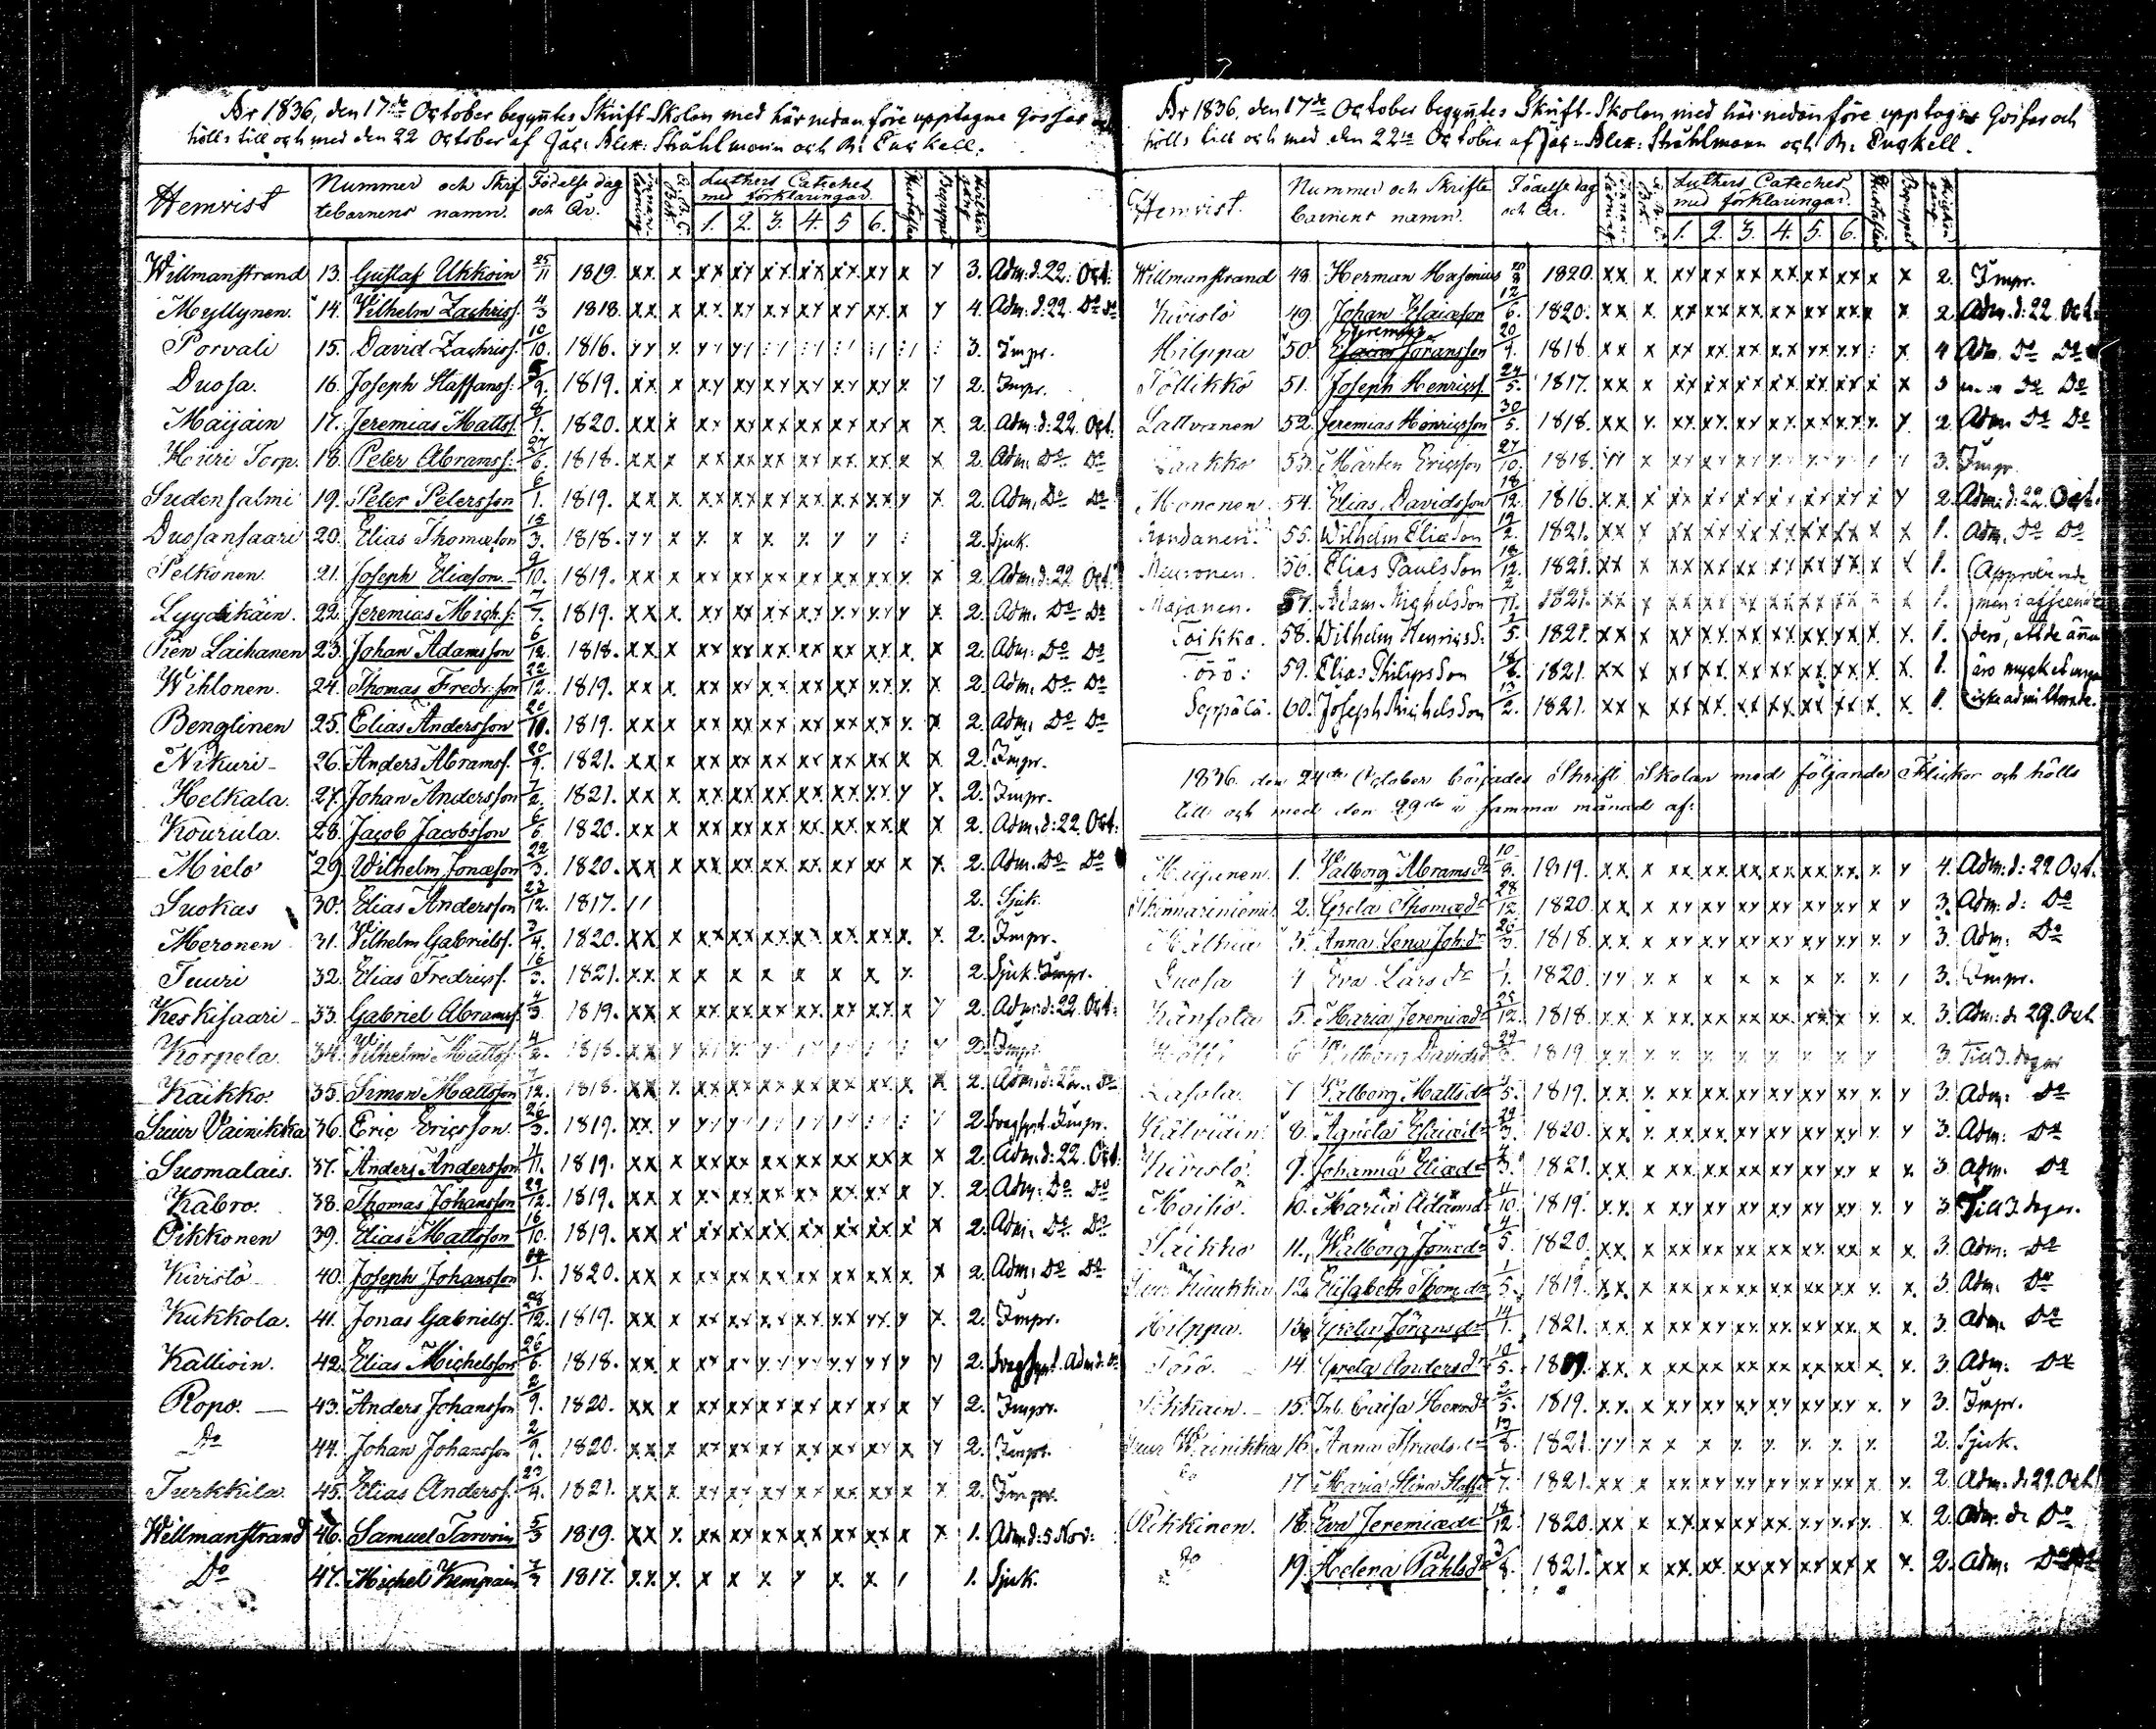 År 1836, den 17de October begyntes Skrift Skolan med här nedanföre upptagne Gossar och
hölls till och med den 22 October af Jac: Alex: Stråhlmann och A: Enckell.
Hemvist Nummer och Skriftebarnens namn. Födelse dag och År. Innan-läsning A.B.C. Bok Luthers Cateches med förklaringar. 1. 2. 3. 4. 5 6. Hustaflan Begreppet
Willmanstrand 13. Gustaf Ukkoin 25/11 1819. xx x xx xx xx xx xx xx x x 3. Adm. d. 22. Oct:
Myllynen. 14. Vilhelm Zachriss. 4/3 1818. xx x xx xx xx xx xx xx. x y 4. Adm. d. 22. Do Do
Porvali 15. David Zachriss. 10/10. 1816. 3. Impr.
Duosa. 16. Joseph Staffanss: 1819. xx x xx xx xx xx xx xx x y 2. Impr.
Maijain 17. Jeremias Mattss. 8/1. 1820. xx x xx xx xx xx xx xx x x 2. Adm. d: 22. Oct.
Hiiri Torp. 18. Peter Abramss: 27/6. 1818. xx x xx xx xx xx xx xx x x 2. Adm. Do Do
Sudensalmi 19. Peter Petersson 6/1. 1819. xx x xx xx xx xx xx xx y x 2. Adm. Do Do
Duosansaari 20. Elias Thomæson 15/3. 1818. yy x x x x x y y 2. Sjuk.
Pelkonen. 21. Joseph Eliæson 9/10. 1819. xx x xx xx xx xx xx xx x x 2. Adm. d: 22 Oct.
Lyydikäin. 22. Jeremias Mich.s: 7/7. 1819. xx x xx xx xx xx xx xx y x 2. Adm. Do Do
Pien Laihanen 23. Johan Adamsson 6/12. 1818. xx x xx xx xx xx xx xx x x 2. Adm: Do Do
Wihlonen. 24. Thomas Fredr:son 22/12. 1819. xx x xx xx xx xx xx xx x x 2. Adm. Do Do
Benglinen 25. Elias Andersson 20/10. 1819. xx x xx xx xx xx xx xx x x 2. Adm. Do Do
Nikuri 26. Anders Abramss. 20/9. 1821. xx x xx xx xx xx xx xx x x 2. Impr.
Helkala. 27. Johan Andersson 7/2. 1821. xx x xx xx xx xx xx xx y x 2. Impr.
Kourula. 28. Jacob Jacobsson 6/6. 1820. xx x xx xx xx xx xx xx x x 2. Adm. d: 22. Oct:
Mielo 29. Wilhelm Jonæson 22/3. 1820. xx x xx xx xx xx xx xx x x 2. Adm. Do Do
Suokas 30. Elias Andersson 23/12. 1817. 2. Sjuk.
Meronen 31. Vilhelm Gabrielss. 3/4. 1820. xx x xx xx xx xx xx xx x x 2. Impr.
Tuuri 32. Elias Fredricss. 16/3. 1821. xx x x x x x x x y 2. Sjuk. Impr.
Keskisaari 33. Gabriel Abramss. 4/3. 1819. xx x xx xx xx xx xx xx x y 2. Adm: d: 22. Oct:
Korpela. 34. Vilhelm Mattss. 4/2. 1818. 2. Impr.
Kaikko. 35. Simon Mattsson 7/12. 1818. xx x xx xx xx xx xx xx x x 2. Adm. d: 22. Do
Suur Vainikka 36. Eric Ericsson. 26/3. 1819. 2. Impr.
Suomalais. 37. Anders Andersson 4/11. 1819. xx x xx xx xx xx xx xx x x 2. Adm. d: 22. Oct.
Kabro. 38. Thomas Johansson 29/12. 1819. xx x xx xx xx xx xx xx x y 2. Adm: Do Do
Pikkonen 39. Elias Mattsson 16/10. 1819. xx x xx xx xx xx xx xx x x 2. Adm: Do Do
Kivistö 40. Joseph Johansson 1820. xx x xx xx xx xx xx xx x x 2. Adm: Do Do
Kukkola. 41. Jonas Gabrielss. 28/12. 1819. xx x xx xx xx xx xx xx y x 2. Impr.
Kallioin. 42. Elias Michelsson 26/6. 1818. 2. Adm d: Do
Ropo. 43. Anders Johansson 2/9. 1820. xx x xx xx xx xx xx xx x y 2. Impr.
Do 44. Johan Johansson 2/9. 1820. xx x xx xx xx xx xx xx x y 2. Impr.
Turkkila 45. Elias Anderss. 23/4. 1821. xx x xx xx xx xx xx xx x x 2. Impr.
Willmanstrand 46. Samuel Tarvoin 5/3 1819. xx x xx xx xx xx xx xx x x 1. Adm d: 5 Nov:
Do 47. Michel Kempain 7/3 1817. xx x x x x y x x 1. Sjuk.
År 1836, den 17de October begyntes Skrift-Skolan, med här nedanföre upptagne Gossar och
hölls till och med den 22ra October af Jac: Alex: Stråhlmann och A: Enckell.
Hemvist. Nummer och Skriftebarnens namn. Födelse dag och År. Luthers Cateches med förklaringar. 1. 2. 3. 4. 5. 6. Hustaflan Begreppet
Willmanstrand 48. Herman Hasenius 1820. xx x xx xx xx xx xx xx x x 2. Impr.
Kivistö 49. Johan Esaiæson 12/6. 1820. xx x xx xx xx xx xx xx x x 2. Adm. d: 22. Oct:
Hilppa 50. Jeremias Göransson 20/4. 1818 xx x xx xx xx xx xx xx x 4 Adm. Do Do
Töllikkö 51. Joseph Henricss. 24/5. 1817. xx x xx xx xx xx xx xx x x 3 Do Do
Lattvanen 52. Jeremias Henricsson 30/5. 1818. xx x xx xx xx xx xx xx x y 2 Adm. Do Do
53. Mårten Ericsson 27/10. 1818. 3. Impr.
Mononen 54. Elias Davidsson 18/12. 1816. xx x xx xx xx xx xx xx x y 2. Adm: d: 22. Oct.
55. Wilhelm Eliæson 19/2. 1821. xx x xx xx xx xx xx xx x x 1. Adm. Do Do
Meuronen. 56. Elias Paulsson 12. 1821. xx x xx xx xx xx xx xx x x 1. (Approberade
Majanen. 57. Adam Michelsson 11. 1821. xx x xx xx xx xx xx xx x x 1. men i afseende
Toikka. 58. Wilhelm Henrics S. 5. 1821. xx x xx xx xx xx xx xx x x 1. derå, att de ännu
Törö: 59. Elias Philipsson 1821. xx x xx xx xx xx xx xx x x 1. äro mycket unga
Seppälä. 60. Joseph Michelsson 13/2. 1821. xx x xx xx xx xx xx xx x x 1. icke admitterade.
1836. den 24de October börjades Skrift Skolan med följande Flickor och hölls
till och med den 29de i samma månad af:
1. Walborg Abramsdr 10/8. 1819. xx x xx xx xx xx xx xx x y 4. Adm: d: 29. Oct.
Skinnariniemi 2. Greta Thomædr 28/12 1820. xx x xx xx xx xx xx xx x y 3. Adm: d: Do
3. Anna Lena Joh.dr 1818. xx x xx xx xx xx xx xx x y 3. Adm: Do
Duosa 4 Eva Larsdr 1. 1820. 3. Impr.
Kärsola 5. Maria Jeremiædr 25/12. 1818. xx x xx xx xx xx xx xx x x 3. Adm: d: 29. Oct
6 Walborg Davidsdr 1819. 3. Till 3. dagar
7 Walborg Mattsdr 5. 1819. xx x xx xx xx xx xx xx x y 3. Adm: Do
Kälviäin. 8. Agneta Esaiædr 29/3. 1820. xx x xx xx xx xx xx xx x y 3. Adm: Do
Kivistö. 9. Johanna Eliædr 3. 1821. xx x xx xx xx xx xx xx x x 3 Adm. Do
10. Maria Adamsdr 11/10. 1819. xx x xx xx xx xx xx xx y y 3 Till 3. dagar.
11. Walborg Jonædr 4/5. 1820. xx x xx xx xx xx xx xx x x 3. Adm: Do
Suur Kuukka 12. Elisabeth Thom.dr 1/5. 1819. xx x xx xx xx xx xx xx y x 3. Adm. Do
Hilppa. 13. Greta Göransdr 14/1. 1821. xx x xx xx xx xx xx xx x x. 3. Adm. Do
Törö. 14. Greta Andersdr 10/5. xx x xx xx xx xx xx xx x x. 3. Adm: Do
15. Caisa Henr.dr 5. 1819. xx x xx xx xx xx xx xx x y 3. Impr.
Suur Wainikka 16. Anna 8. 1821. 2. Sjuk.
Do 17 Maria Stina Staff.dr 7. 1821. xx x xx xx xx xx xx xx x x. 2. Adm: d: 29. Oct
Pikkinen. 18. Eva Jeremiædr 18/12. 1820. xx x xx xx xx xx xx xx x 2. Adm. d: Do
Do 19. Helena Påhlsdr 3/8. 1821. xx x xx xx xx xx xx xx x x. 2. Adm: Do